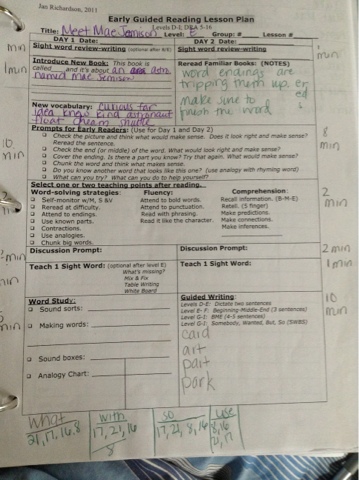 Jan Richardson, 2011
Early Guided Reading Lesson Plan
Levels D-I; DRA 5-16
Title: Meet Mae Jemison Level: E Group: # Lesson #
DAY 1 Date: DAY 2 Date:
Sight word review-writing (optional after I/E) Sight word review-writing
min
1min
Introduce New Book: This book is
called and it's about an astro
named Mae Jemison
Read Familiar Books: (NOTES)
word endings are
tripping them up er
ed
s
make sure to
finish the word
New vocabulary: curious far
idea knew kind astronaut
float dream shuttle
Prompts for Early Readers: (Use for Day 1 and Day 2)
Check the picture and think what would make sense. Does it look right and make sense?
Reread the sentence.
Check the end (or middle) of the word. What would look right and make sense?
Cover the ending. Is there a part you know? Try that again. What would make sense?
Chunk the word and think what makes sense.
Do you know another word that looks like this one? (use analogy with rhyming word)
What can you try? What can you do to help yourself?
10
min
8
min
Select one or two teaching points after reading.
Word-solving strategies: Fluency: Comprehension:
Self-monitor w/M, S &V Attend to bold words. Recall information. (B-M-E)
Reread at difficulty. Attend to punctuation. Retell. (5 finger)
Attend to endings. Read with phrasing. Make predictions.
Use known parts. Read it like the character. Make connections.
Contractions. Make inferences.
Use analogies.
Chunk big words.
2
min
Discussion Prompt: Discussion Prompt:
2min
Teach 1 Sight Word: (optional after level E) Teach 1 Sight Word:
What's missing?
Mix & Fix
Table Writing
White Board
1min
Word Study:
Sound sorts:
Making words:
Sound boxes:
Analogy Chart:
Guided Writing:
Levels D-E: Dictate two sentences
Levels E- F: Beginning-Middle-End (3 sentences)
Levels G-I: BME (4-5 sentences)
Levels G-I: Somebody, Wanted, But, So (SWBS)
card
art
part
park
10
min
what
21, 17, 16, 8
with
17, 21, 16
8
so
17, 21, 8, 16
use
8, 16
21, 17